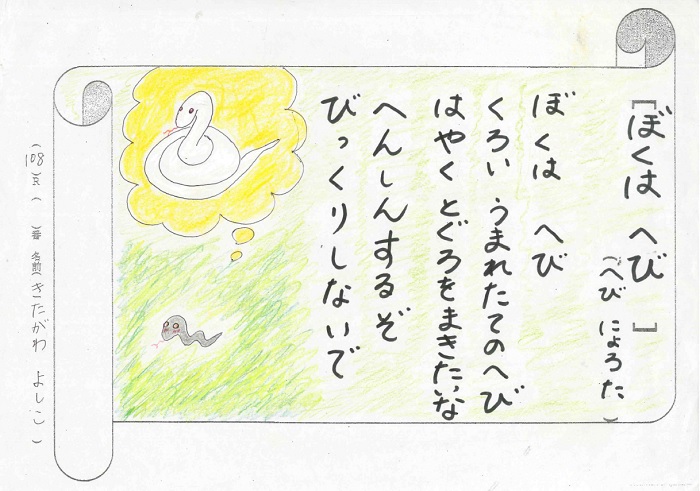 「ぼくは へび」
(へび にょろた)
ぼくは へび
くろい うまれたてのへび
はやく とぐろをまきたいな
へんしんするぞ
びっくりしないで
(108)R( )番 名前(きたがわ よしこ)